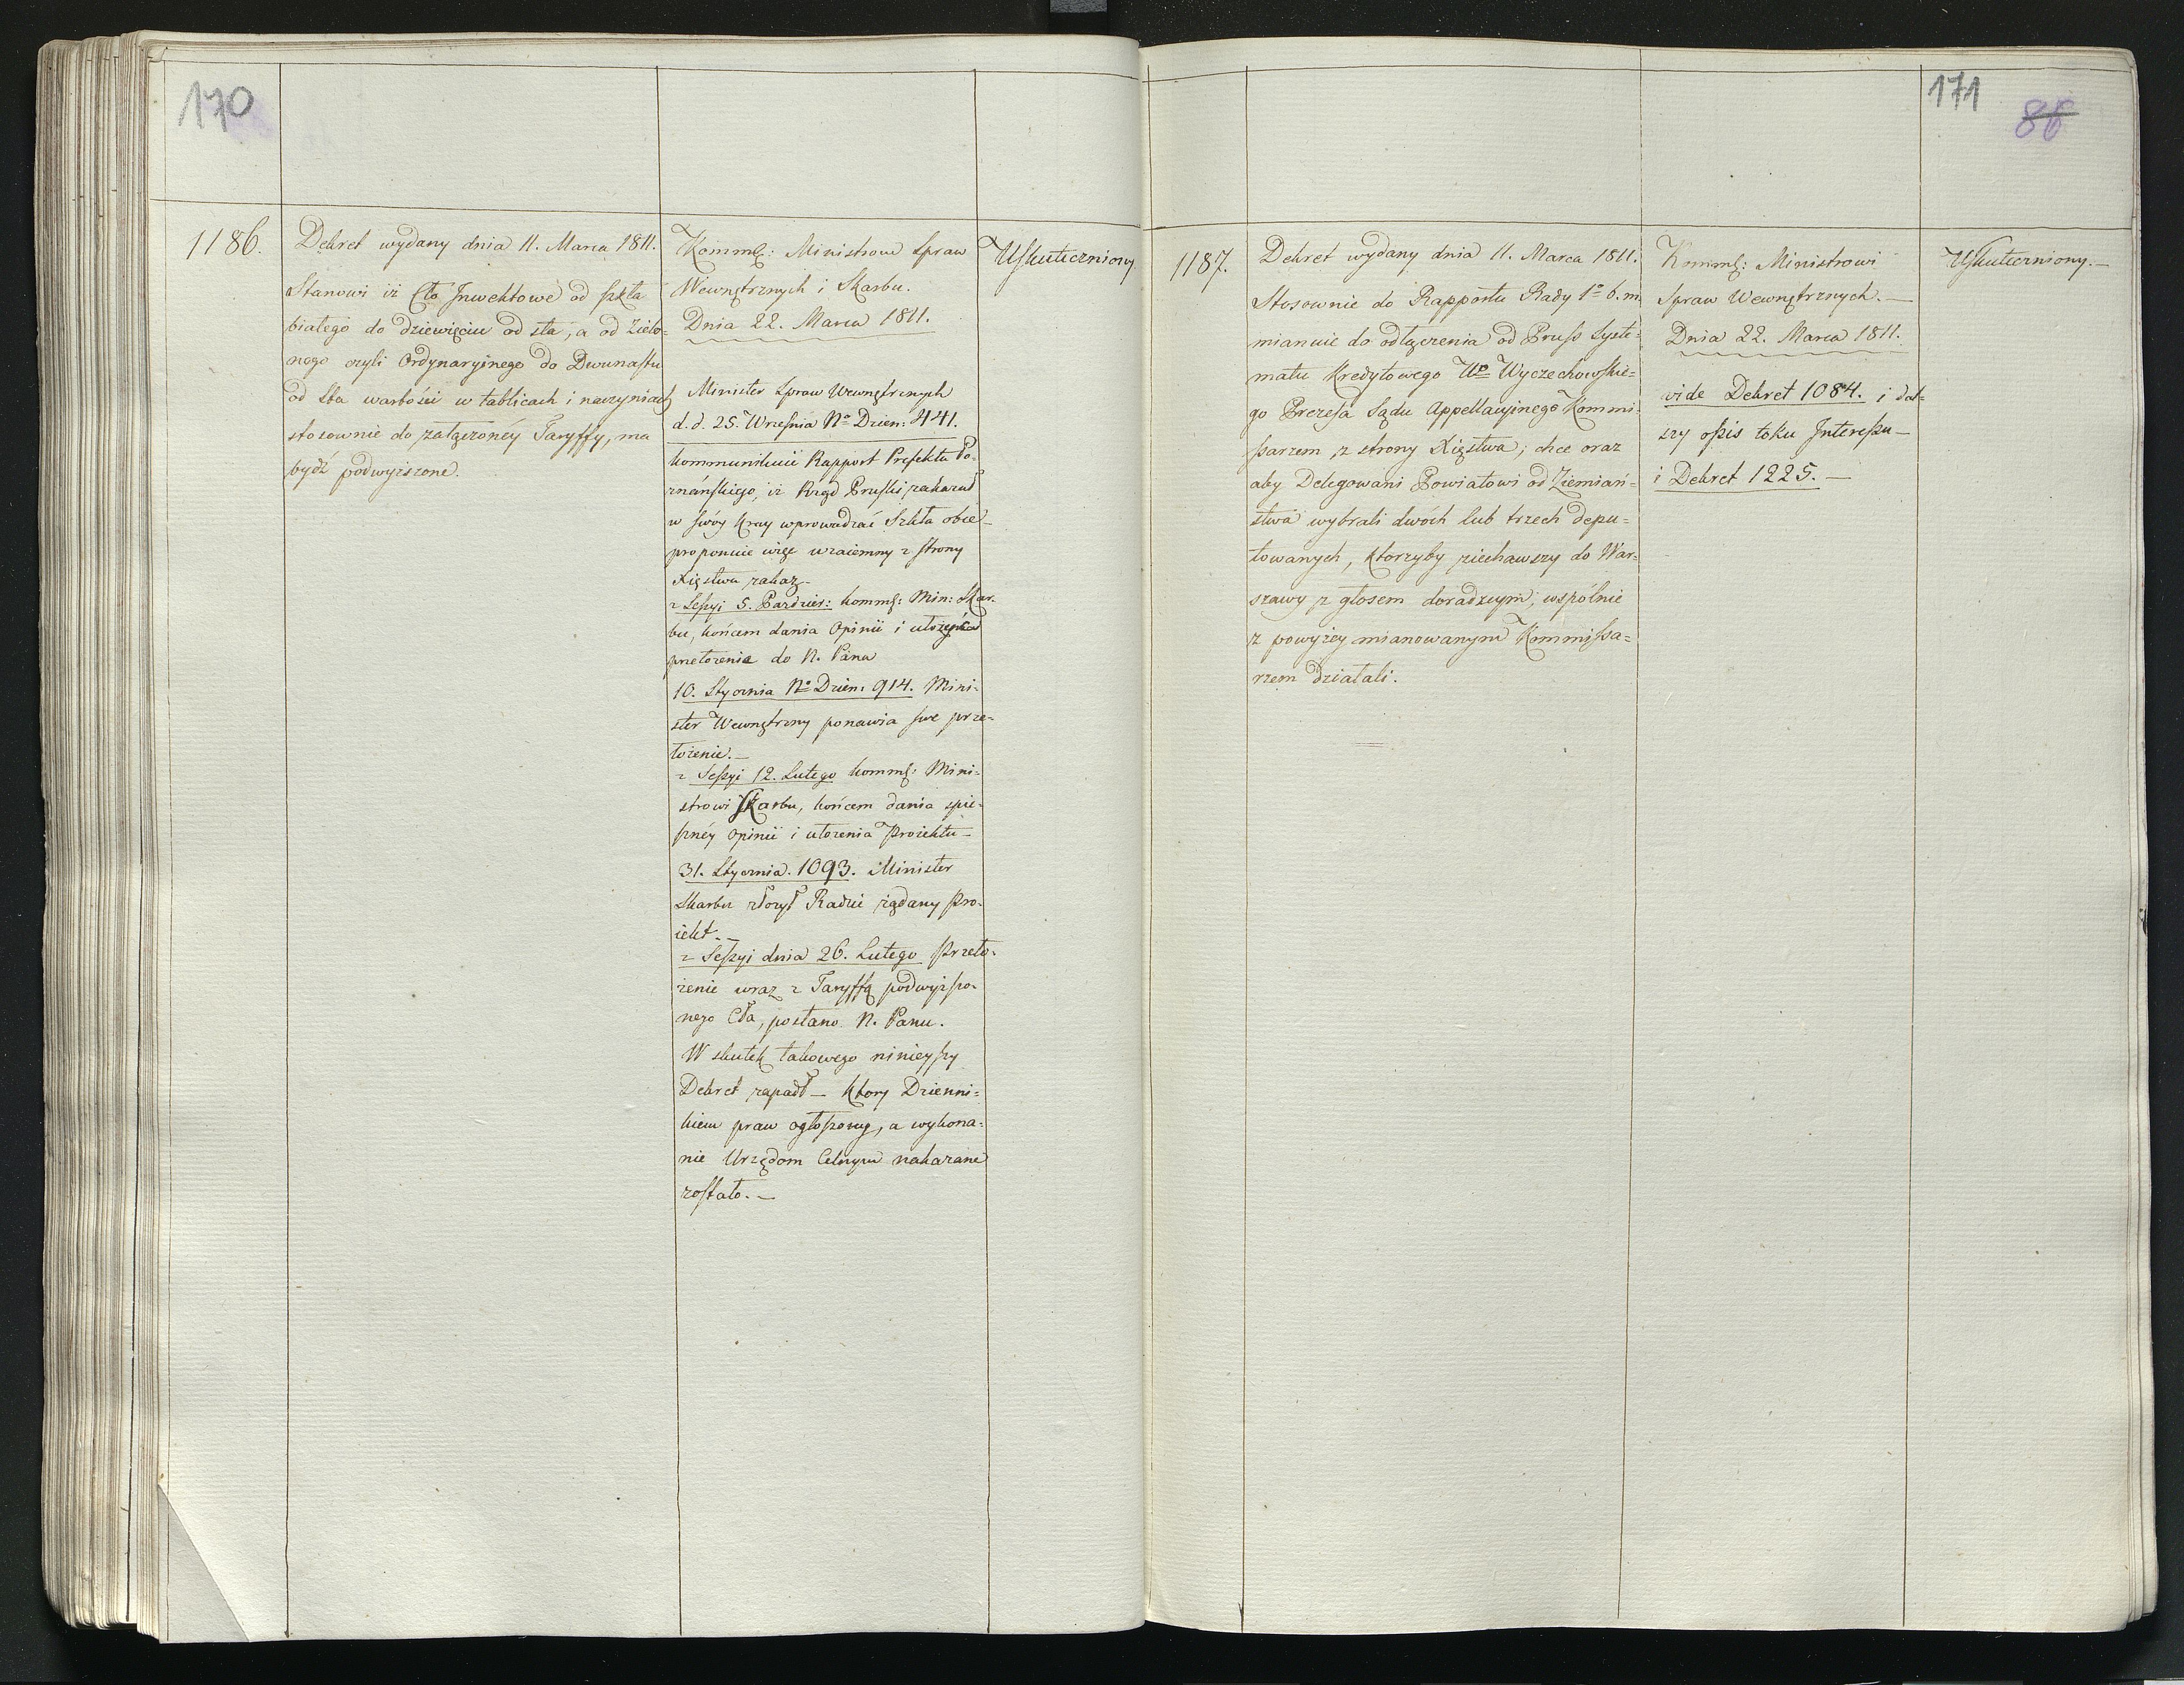 170
1186.
Dekret wydany dnia 11. Marca 1811.
Stanowi iż Cło Inwektowe od szkła
białego do dziewięciu od sta, a od zielo-
nego czyli Ordynaryinego do Dwunastu
od Sta wartości w tablicach i naczyniach
stosownie do załączonéy Taryffy, ma
bydź podwyższone.
Komms: Ministrom Spraw
Wewnętrznych i Skarbu.
Dnia 22. Marca 1811.
Minister Spraw Wewnętrznych
d. d. 25. Września No Dzien: 441.
kommunikuie Rapport Prefekta Po-
znańskiego, iż Rząd Pruski zakazał
w swóy Kray wprowadzać Szkła obce –
proponuie więc wzaiemny z strony
Xięstwa zakaz –
z Sessyi 5. Paździer: komms: Min: Skar-
bu, końcem dania Opinii i ułożenia
przełożenia do N. Pana
10. Stycznia No Dzien: 914. Mini-
ster Wewnętrzny ponawia swe prze-
łożenie. –
z Sessyi 12. Lutego komms: Mini-
strowi Skarbu, końcem dania spie-
sznéy Opinii i ułożenia Proiektu –
31. Stycznia. 1093. Minister
Skarbu złożył Radzie żądany Pro-
iekt. –
z Sessyi dnia 26. Lutego Przeło-
żenie wraz z Taryffą podwyższo-
nego Cła, posłano N. Panu.
W skutek takowego ninieyszy
Dekret zapadł – który Dzienni-
kiem praw ogłoszony, a wykona-
nie Urzędom Celnym nakazane
zostało. –
Uskuteczniony
171
86
1187.
Dekret wydany dnia 11. Marca 1811.
Stosownie do Rapportu Rady 1o b. m.
mianuie do odłączenia od Pruss Syste-
matu Kredytowego Wo Wyczechowskie-
go Prezesa Sądu Appellacyinego Kommi-
ssarzem z strony Xięstwa; chce oraz
aby Delegowani Powiatowi od Ziemiań-
stwa wybrali dwóch lub trzech depu-
towanych, którzyby ziechawszy do War-
szawy z głosem doradczym, wspólnie
z powyżey mianowanym Kommissa-
rzem działali.
Komms: Ministrowi
Spraw Wewnętrznych. –
Dnia 22. Marca 1811.
vide Dekret 1084. i dal-
szy opis toku Interessu –
i Dekret 1225. –
Uskuteczniony. –